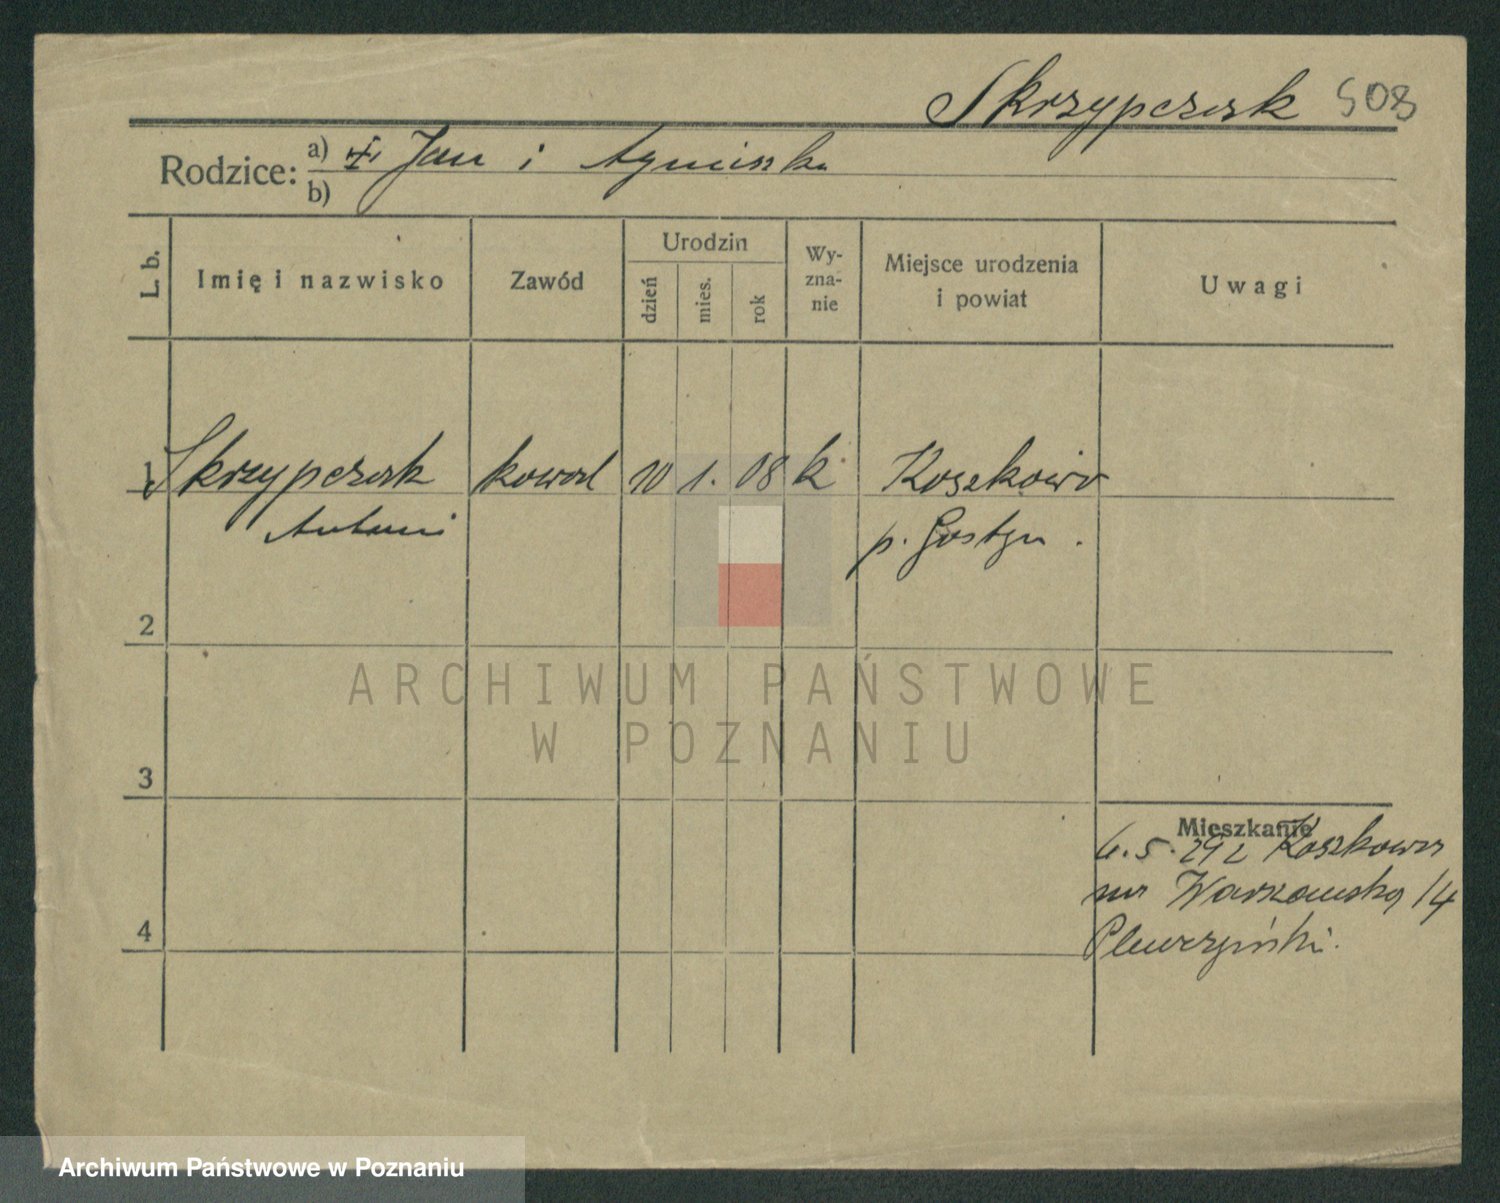 Skrzypczak 508
Rodzice: a) Jan i Agnieszka
b)
L. b.
Imię i nazwisko
Zawód
Urodzin
dzień
mies.
rok
Wy-
zna-
nie
Miejsce urodzenia
i powiat
Uwagi
1 Skrzypczak kowal 10 1. 08 k Koszkowo
Antoni p. Gostyn.
2
ARCHIWUM PAŃSTWOWE
W POZNANIU
3
Mieszkanie
6. 5. 29 z Koszkowa
na 14
4
Archiwum Państwowe w Poznaniu